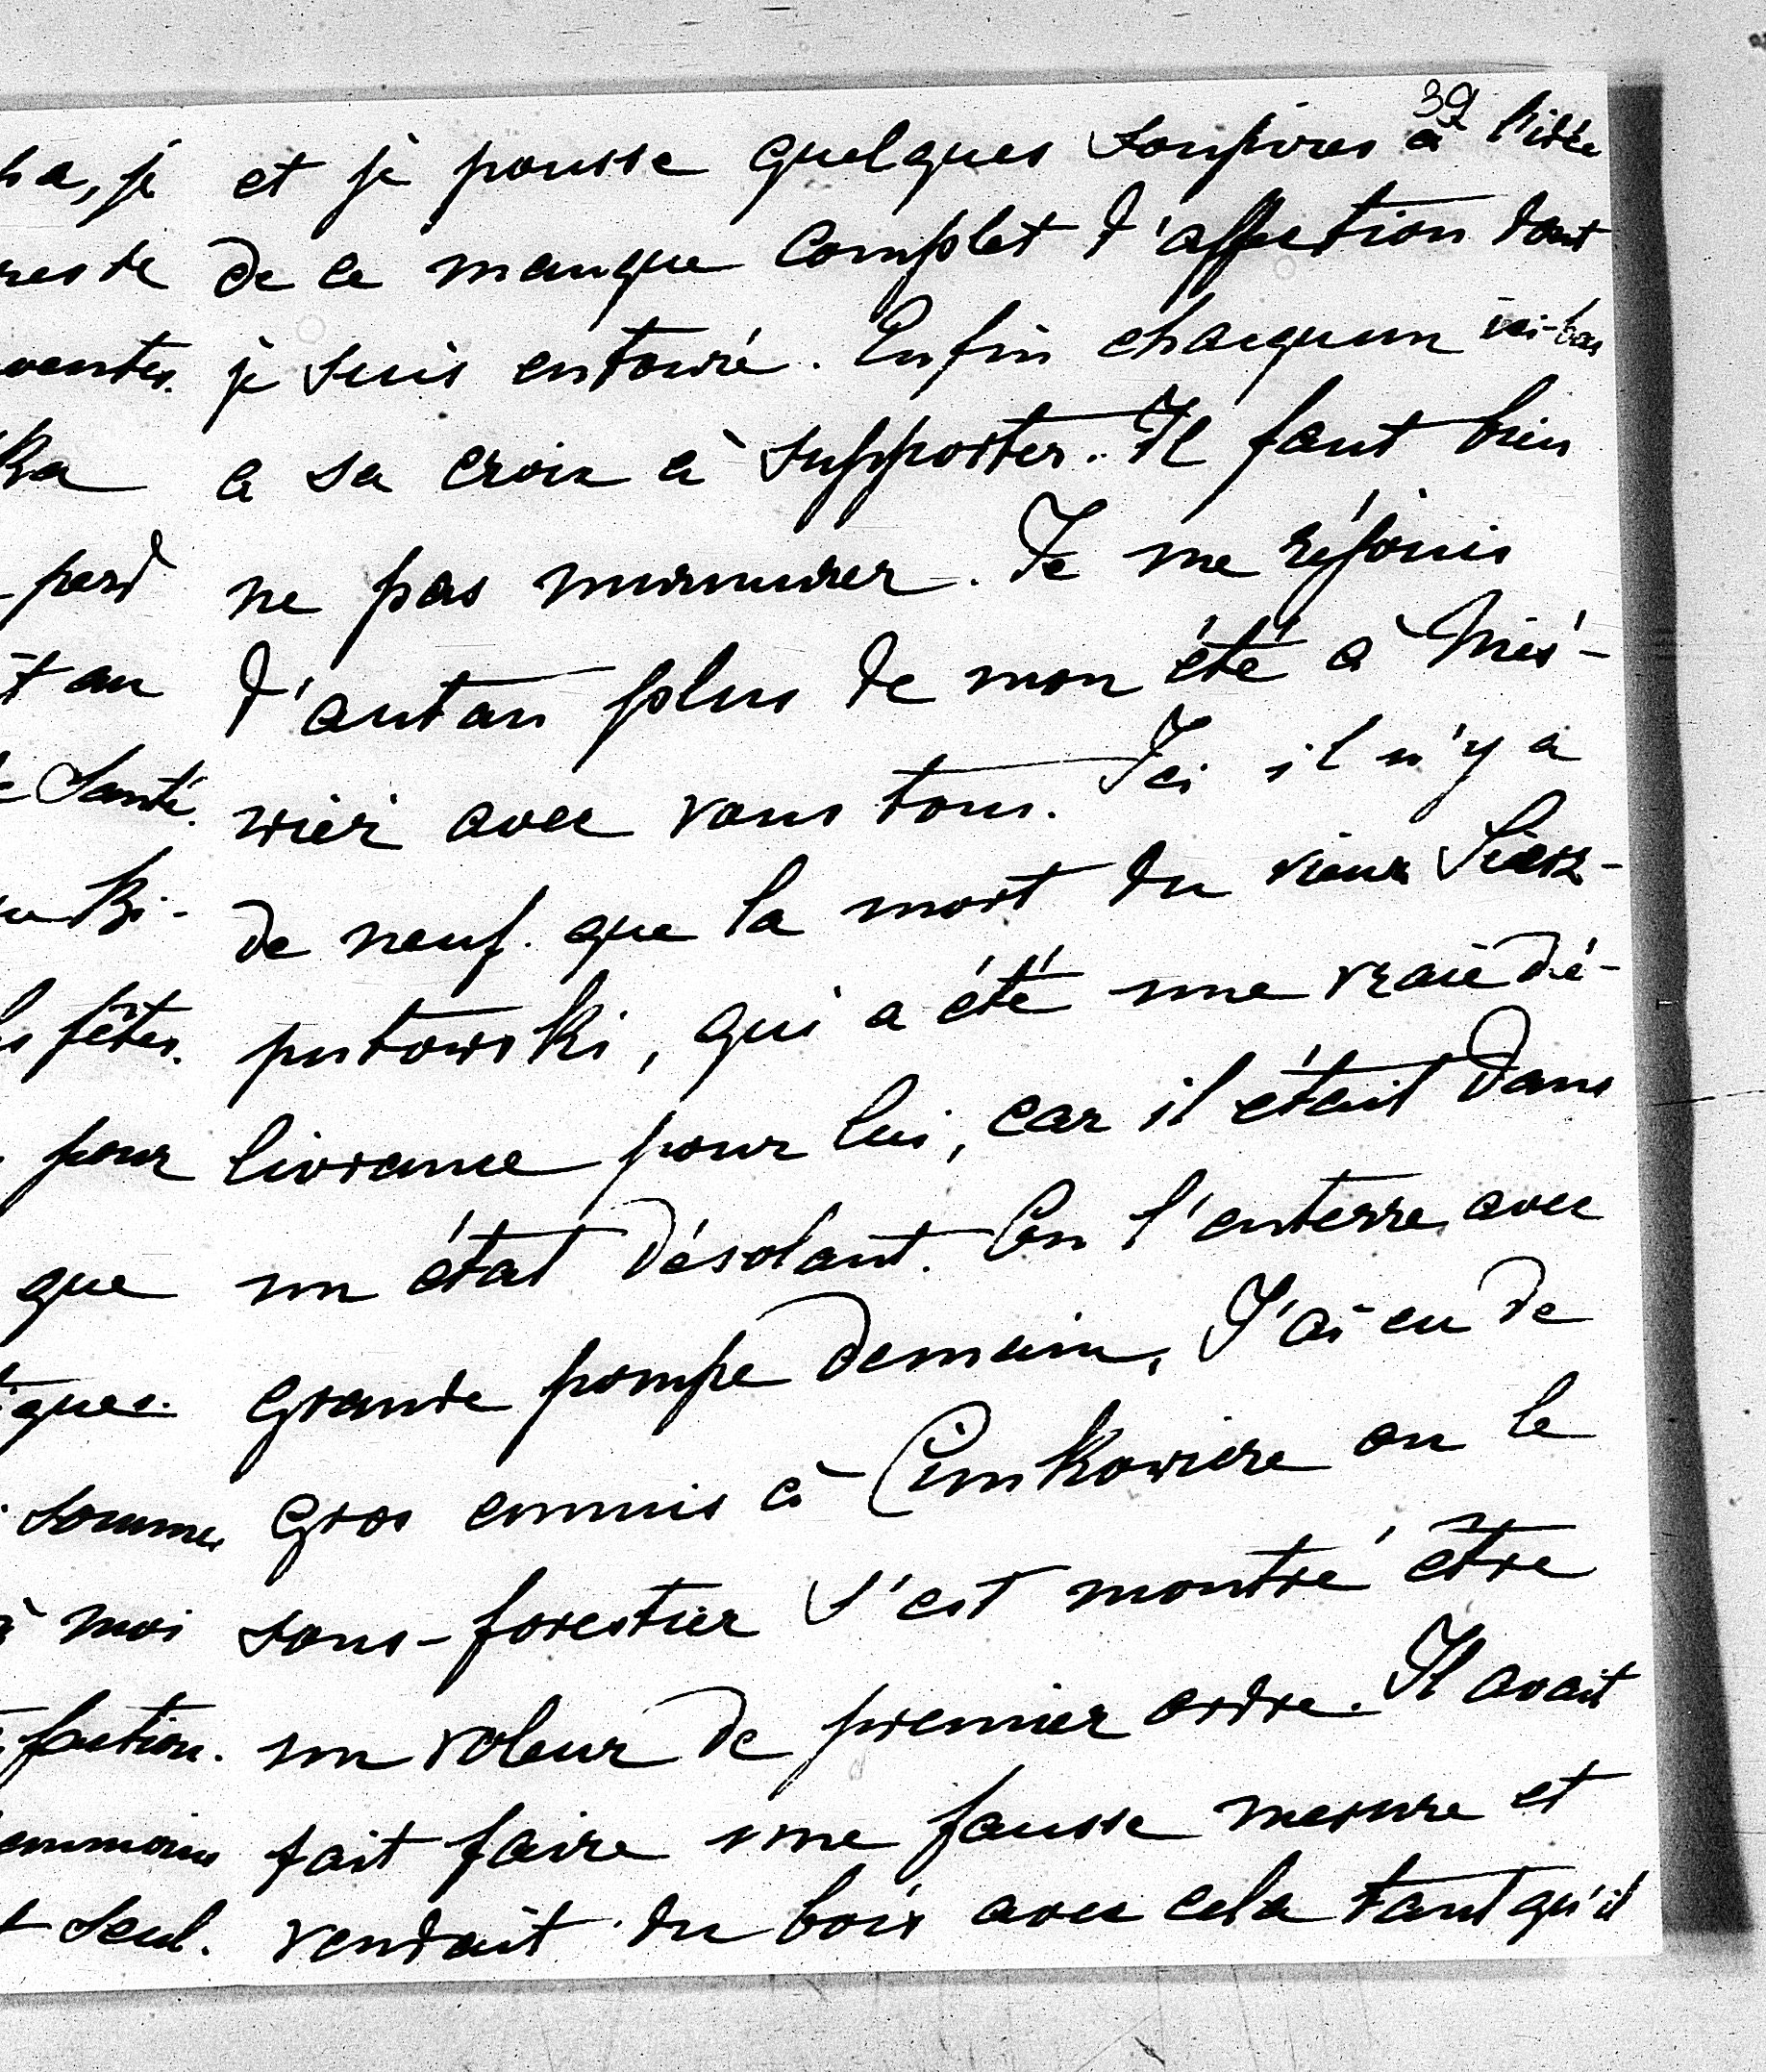 39
et je pousse quelques soupires à l'idée
de ce manque complet d'affection dont
je suis entouré. Enfin chaqunn ici-bas
a sa croix à supporter. Il faut bien
ne pas murmurer. Je me réjouis
d'autan plus de mon été à Nies-
wież avec vous tous. Ici il n'y a
de neuf que la mort du vieux
putowski, qui a été une vraie dé-
livrance pour lui, car il était dans
un état désolant. On l'enterre avec
grande pompe demain. J'ai eu de
gros ennuis à Cimkowicze ou le
sous-forestier s'est montré être
un voleur de premier ordre. Il avait
fait faire une fausse mesure et
vendait du bois avec cela tant qu'il
ha, je
reste
ventes.
ka
perd
t au
Santé.
Ki-
fêtes.
pour
que
ques.
sommes
à moi
faction.
t seul.